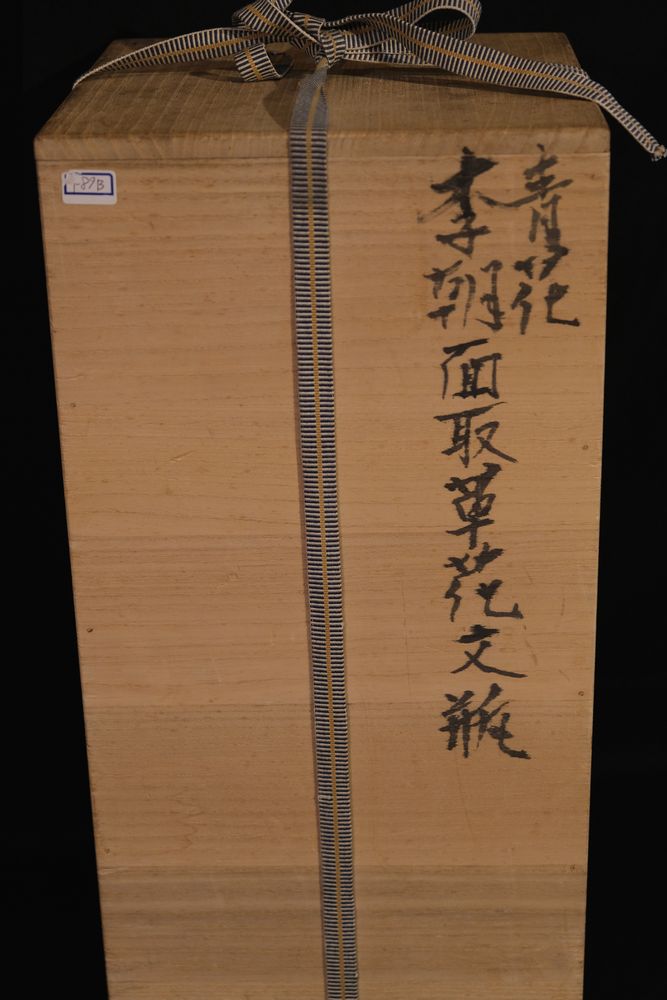 青花
李朝面取草花文瓶
89B